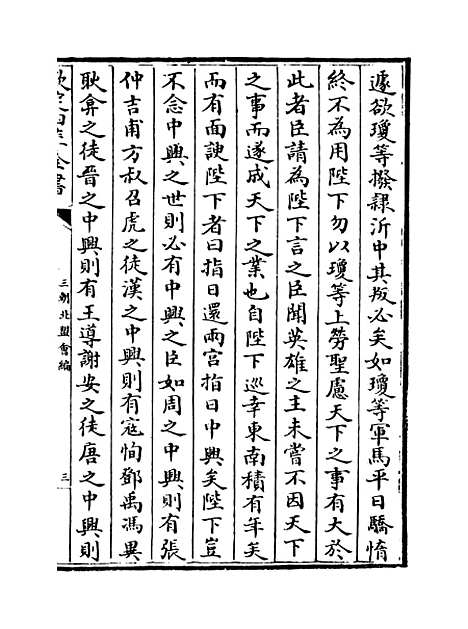 遽欲瓊等撥隸沂中其叛必矣如瓊等軍馬平日驕惰
終不為用陛下勿以瓊等上勞聖慮天下之事有大於
此者臣請為陛下言之臣聞英雄之主未嘗不因天下
之事而遂成天下之業也自陛下巡幸東南積有年矣
而有面諛陛下者曰指日還兩宫指日中興矣陛下豈
不念中興之世則必有中興之臣如周之中興則有張
仲吉甫方叔召虎之徒漢之中興則有寇恂鄧禹馮異
耿弇之徒晉之中興則有王導謝安之徒唐之中興則
欽定四庫全書
三朝北盟會編
三